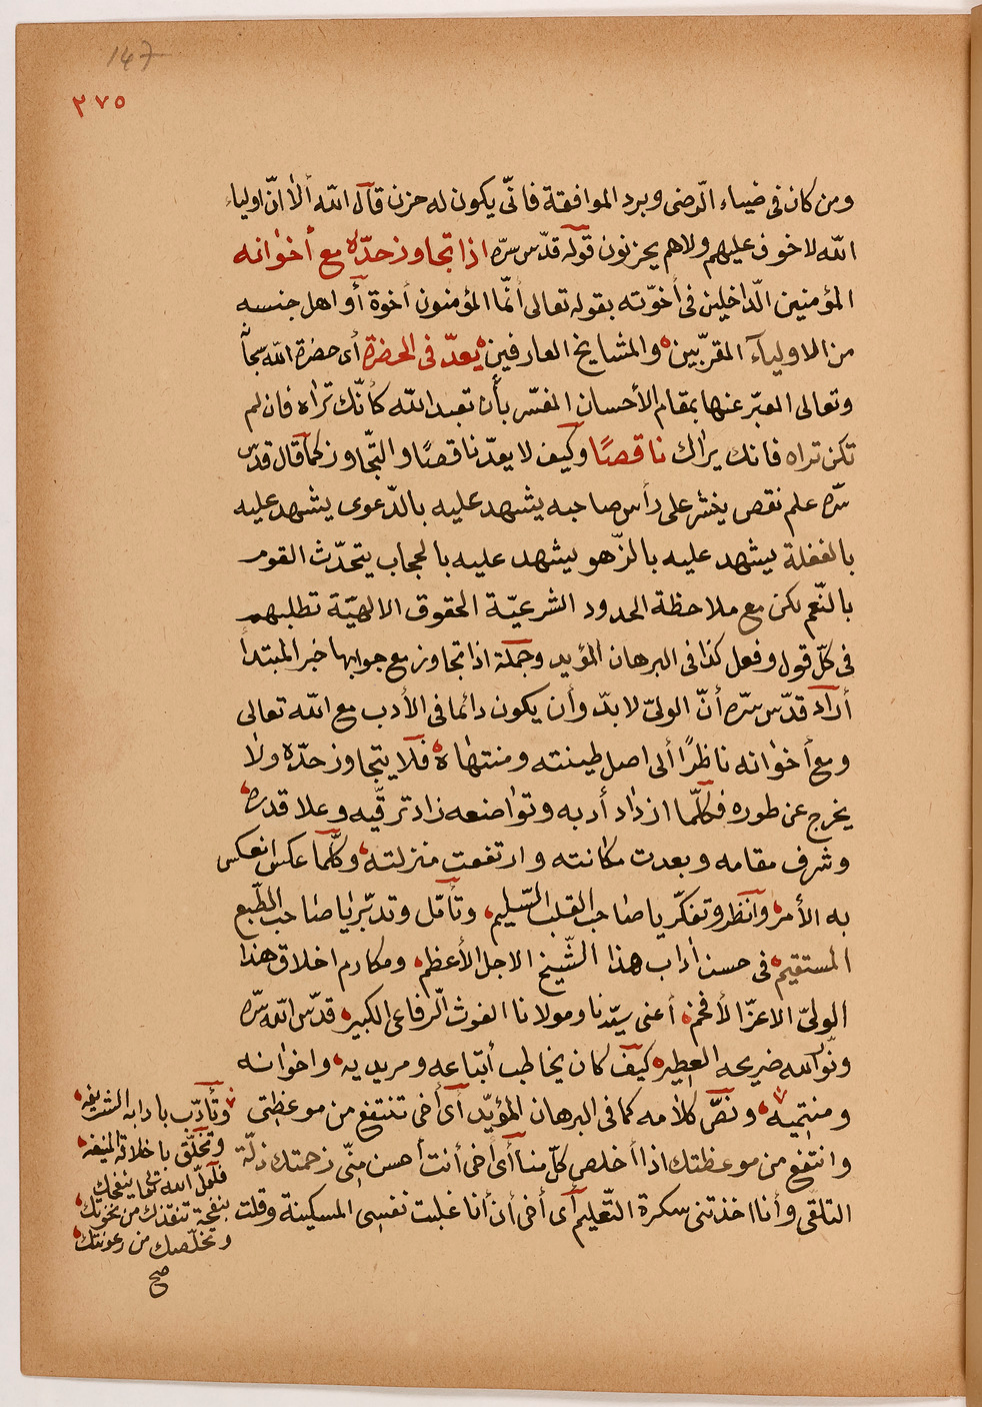 147
٢٧٥
ومن كان فى ضياء الّرضى وبرد الموافقة فانّى يكون له حزن قال الله ألأ انّ اولياء
الله لا خوف عليهم ولا هم يحزنون قوله قدّس سرّه اذا تجاوز حدّه مع أخوانه
المؤمنين الّداخلين فى أخوّته بقوله تعالى انّما المؤمنون أخوة أو اهل جنسه
من الاولياء المقرّبين والمشايخ العارفين يعدّ فى الحضرة أى حضرة الله سبحانه
وتعالى المعبّر عنها بمقام الأحسان المفسّر بأن تعبد الله كأنّك تراه فان لم
تكن تراه فانك يراك ناقصًا وكيف لا يعدّ ناقصًا والتّجاوز كما قال قدّس
سّره علم نقص ينشر على رأس صاحبه يشهد عليه بالدّعوى يشهد عليه
بالغفلة يشهد عليه بالزّهو يشهد عليه بالحجاب يتحدّث القوم
بالنّعم لكن مع ملاحظة الحدود الشرعيّة الحقوق الالهيّة تطلبهم
فى كلّ قول وفعل كذا فى البرهان المؤيد وجملة اذا تجاوز مع جوابها خبر المبتدأ
أراد قدّس سرّه أنّ الولىّ لا بدّ وأن يكون دائما فى الأدب مع الله تعالى
ومع أخوانه ناظرًا ألى اصل طينته ومنتهاه فلا يتجاوز حدّه ولا
يخرج عن طوره فكلّما ازداد أدبه وتواضعه زاد ترقّيه وعلا قدره
وشرف مقامه وبعدت مكانته وارتفعت منزلته وكلّما عكس انعكس
به الأمر وانظر وتفكّر يا صاحب القلب السّليم وتأمّل وتدبّر يا صاحب الطّبع
المستقيم فى حسن أداب هذا الشّيخ الاجل الأعظم ومكارم اخلاق هذا
الولىّ الاعزّ الأفخم أعنى سيّدنا ومولانا الغوث الّرفاعى الكبير قدّس الله سّره
ونّور الله ضريحه العطير كيف كان يخاطب أتباعه ومريديه واخوانه
ومنتميه ونصّ كلامه كما فى البرهان المؤيّد أى أخى تنتفع من موعظتى
وانتفع من موعظتك اذا أخلص كلّ منا أى أخى أنت أحسن منّى زحمتك ذلّة
التلقى وأنا اخذتنى سكرة التّعليم أى أخى أن أنا غلبت نفسى المسكينة وقلت
وتأدّب بادابه الشريفه
وتخلّق باخلاقه المنيفه
فلعلّ الله تعالى ينفحك
بنفحة تنقذك من نخوتك
وتخلّصك من رعونتك
صح